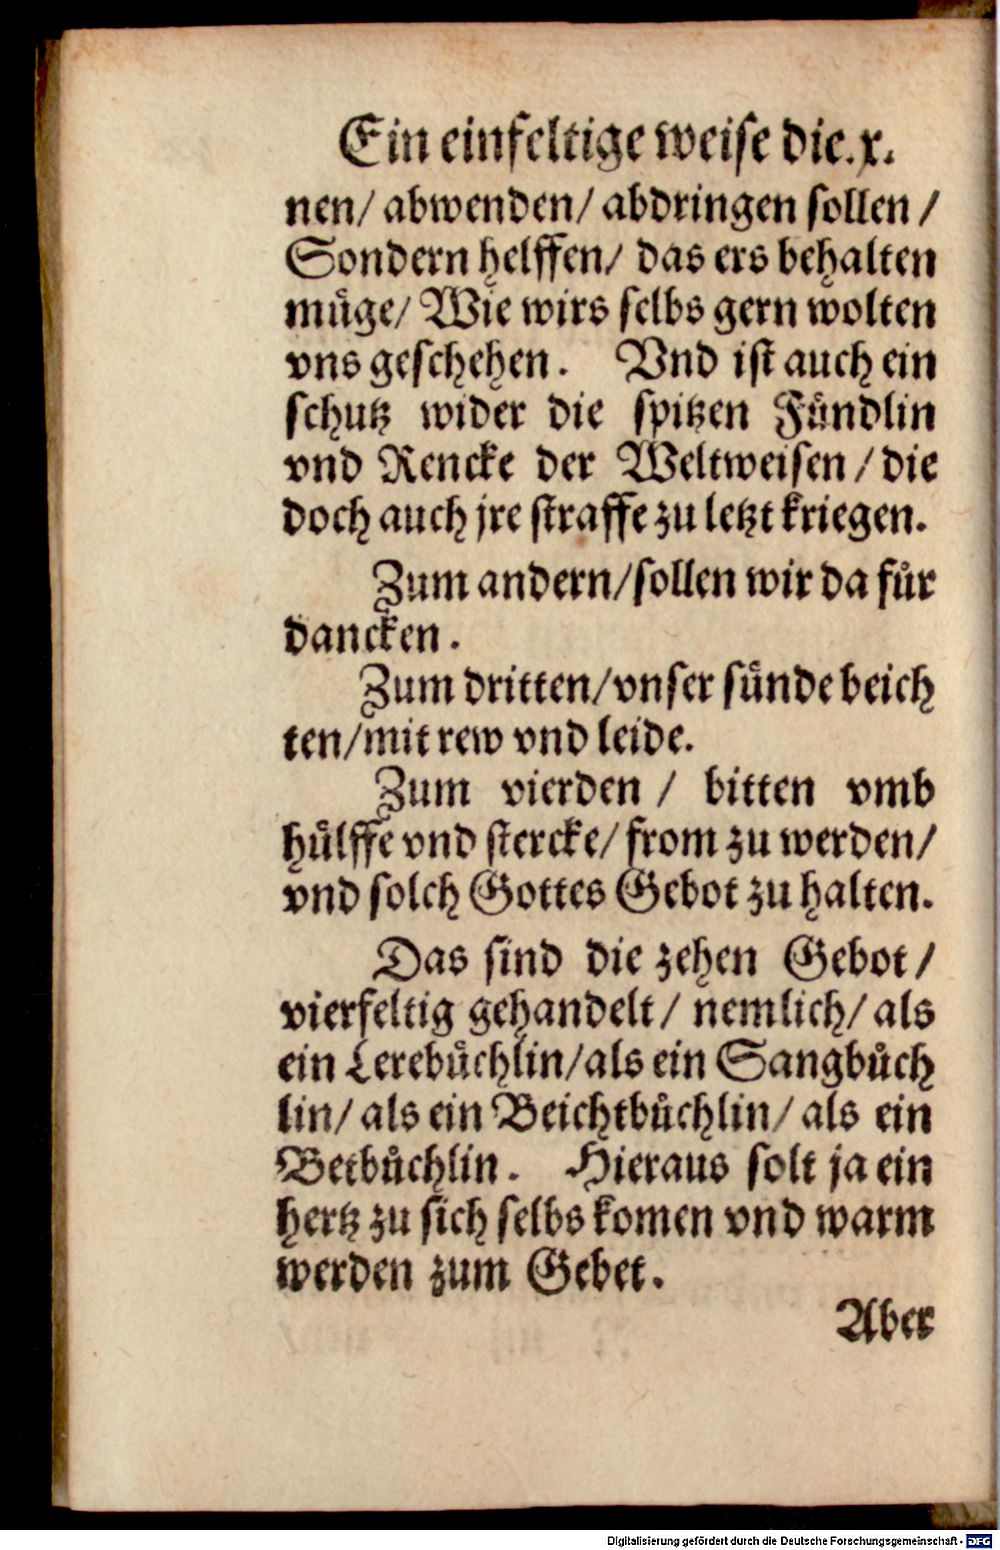 Ein einfeltige weise die.x.
nen/ abwenden/ abdringen sollen /
Sondern helffen/ das ers behalten
muͤge/ Wie wirs selbs gern wolten
vns geschehen. Vnd ist auch ein
schutz wider die spitzen Fuͤndlin
vnd Rencke der Weltweisen / die
doch auch jre straffe zu letzt kriegen.
Zum andern/sollen wir da fuͤr
dancken.
Zum dritten/vnser suͤnde beich
ten/mit rew vnd leide.
Zum vierden / bitten vmb
huͤlffe vnd stercke/ from zu werden/
vnd solch Gottes Gebot zu halten.
Das sind die zehen Gebot /
vierfeltig gehandelt/ nemlich/ als
ein Lerebuͤchlin/als ein Sangbuͤch
lin/ als ein Beichtbuͤchlin/ als ein
Betbuͤchlin. Hieraus solt ja ein
hertz zu sich selbs komen vnd warm
werden zum Gebet.
Aber
Digitalisierung gefördert durch die Deutsche Forschungsgemeinschaft - DFG